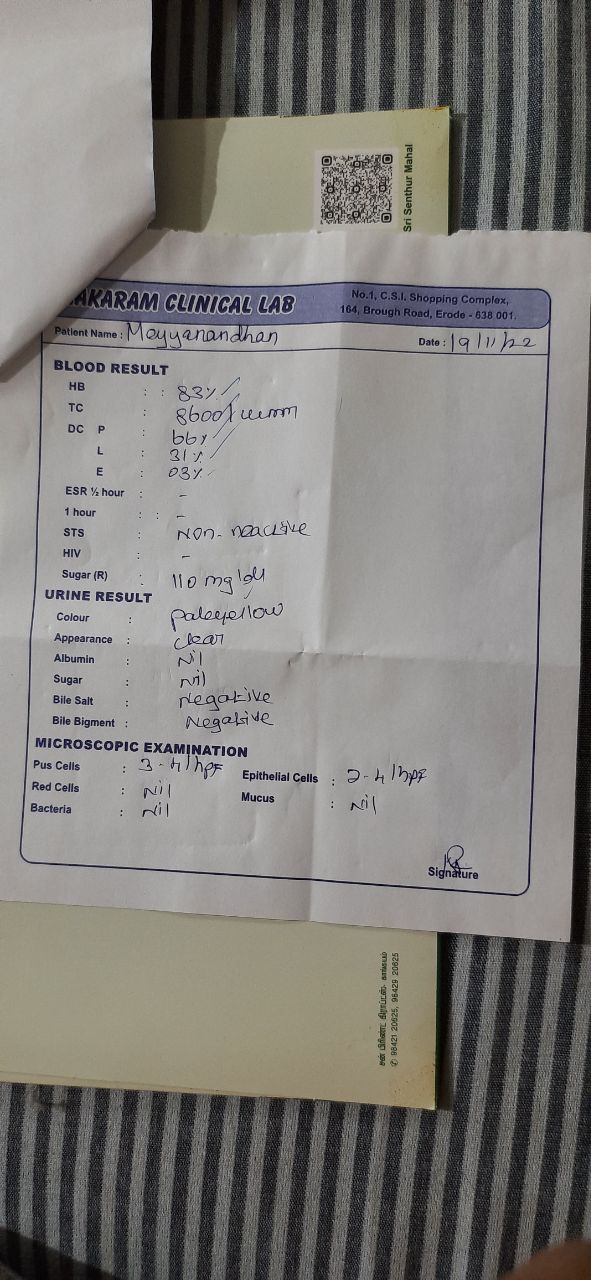 Sri Senthur Mahal
AKARAM CLINICAL LAB
No.1, C.S.I. Shopping Complex,
164, Brough Road, Erode - 638 001.
Patient Name : Meyyanandhan
Date : 19/11/22
BLOOD RESULT
HB : : 83%
TC : 8600/cumm
DC P : 66%
L : 31%
E : 03%
ESR ½ hour : -
1 hour : : -
STS : Non-reactive
HIV : -
Sugar (R) : 110 mg/dl
URINE RESULT
Colour : paleyellow
Appearance : clear
Albumin : Nil
Sugar : Nil
Bile Salt : Negative
Bile Bigment : Negative
MICROSCOPIC EXAMINATION
Pus Cells : 3-4/hpf Epithelial Cells : 2-4/hpf
Red Cells : Nil Mucus : Nil
Bacteria : Nil
Signature
✆ 98421 20625, 98429 20625